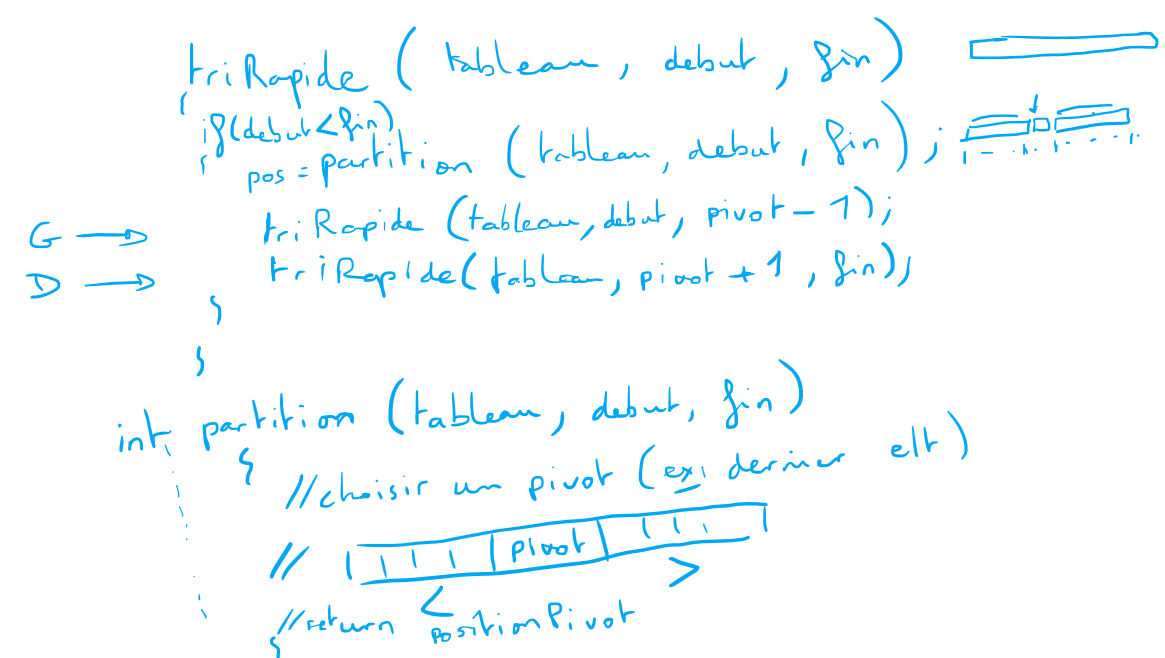 triRapide ( tableau, debut, fin)
{
if(debut<fin)
{
pos = partition (tableau, debut, fin);
G → triRapide (tableau, debut, pivot - 1);
D → triRapide(tableau, pivot + 1, fin);
}
}
int partition (tableau, debut, fin)
{
//choisir un pivot (ex: dernier elt)
// pivot
< >
//return positionPivot
}